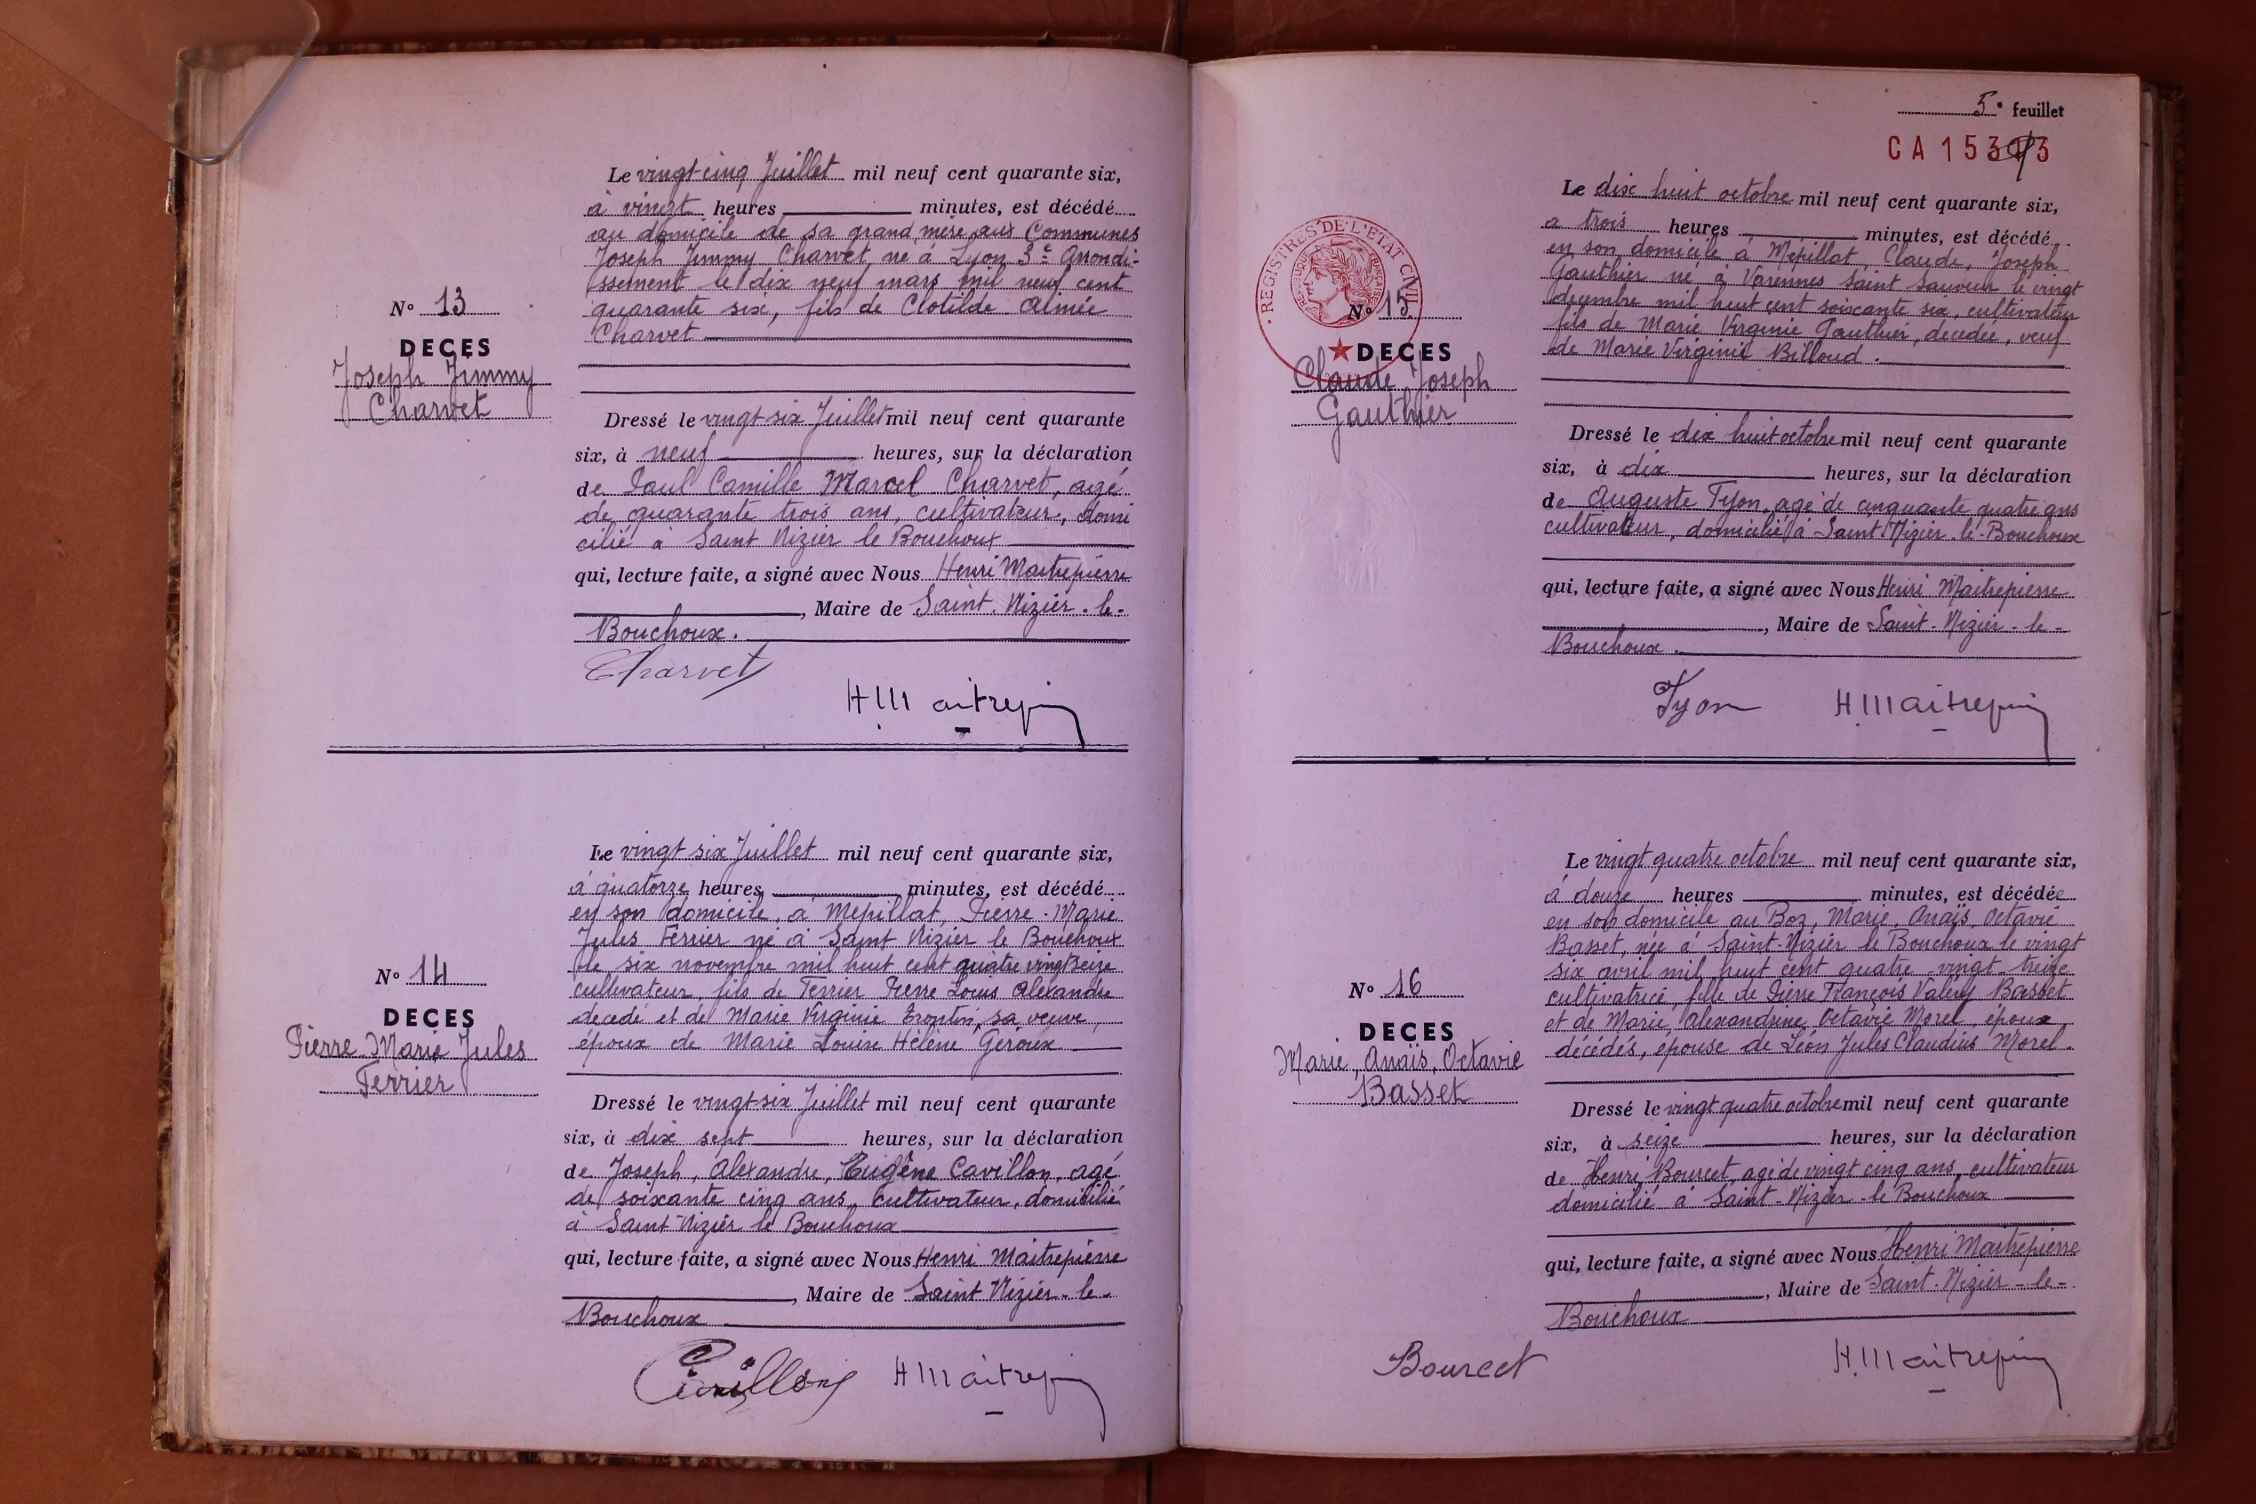 Le vingt-cinq Juillet mil neuf cent quarante six,
à vingt heures minutes, est décédé
au domicile de sa grand mère aux Communes
Joseph Jimmy Charvet, né à Lyon 3e Arrondi-
ssement le dix neuf mars mil neuf cent
quarante six, fils de Clotilde Aimée
Charvet
N° 13
DECES
Joseph Jimmy
Charvet
Dressé le vingt-six Juillet mil neuf cent quarante
six, à neuf heures, sur la déclaration
de Paul Camille Marcel Charvet, agé
de quarante trois ans, cultivateur, domi
cilié à Saint Nizier le Bouchoux
qui, lecture faite, a signé avec Nous Henri Maitrepierre
, Maire de Saint-Nizier-le-
Bouchoux.
Charvet
H Maitrepierre
Le vingt six Juillet mil neuf cent quarante six,
à quatorze heures minutes, est décédé
en son domicile, à Mépillat, Pierre-Marie
Jules Ferrier né à Saint Nizier le Bouchoux
le six novembre mil huit cent quatre vingt seize
cultivateur, fils de Ferrier Pierre Louis Alexandre
décédé et de Marie Virginie sa veuve,
époux de Marie Louise Hélène Géroux
N° 14
DECES
Pierre-Marie Jules
Ferrier
Dressé le vingt-six Juillet mil neuf cent quarante
six, à dix sept heures, sur la déclaration
de Joseph, Alexandre, Eugène Cavillon, agé
de soixante cinq ans, cultivateur, domicilié
à Saint-Nizier le Bouchoux
qui, lecture faite, a signé avec Nous Henri Maitrepierre
, Maire de Saint Nizier-le-
Bouchoux
Cavillon H Maitrepierre
5e feuillet
CA 15
REGISTRES DE L'ETAT CIVIL
Le dix huit octobre mil neuf cent quarante six,
a trois heures minutes, est décédé
en son domicile à Mépillat, Claude, Joseph
Gauthier né à Varennes Saint Sauveur le vingt
décembre mil huit cent soixante six, cultivateur
fils de Marie Virginie Gauthier, décédée, veuf
de Marie Virginie Billoud.
N° 15
DECES
Claude Joseph
Gauthier
Dressé le dix huit octobre mil neuf cent quarante
six, à dix heures, sur la déclaration
de Auguste Tyon, agé de cinquante quatre ans
cultivateur, domicilié à Saint Nizier-le-Bouchoux
qui, lecture faite, a signé avec Nous Henri Maitrepierre
, Maire de Saint-Nizier-le-
Bouchoux.
Tyon H Maitrepierre
Le vingt quatre octobre mil neuf cent quarante six,
à douze heures minutes, est décédée
en son domicile au Boz, Marie, Anaïs, Octavie
Basset, née à Saint-Nizier le Bouchoux le vingt
six avril mil huit cent quatre-vingt-treize
cultivatrice, fille de Pierre François Valéry Basset
et de Marie, Alexandrine, Octavie Morel, époux
décédés, épouse de Léon Jules Claudius Morel.
N° 16
DECES
Marie, Anaïs, Octavie
Basset
Dressé le vingt quatre octobre mil neuf cent quarante
six, à seize heures, sur la déclaration
de Henri Bourcet, agé de vingt cinq ans, cultivateur
domicilié à Saint-Nizier-le Bouchoux
qui, lecture faite, a signé avec Nous Henri Maitrepierre
, Maire de Saint-Nizier-le-
Bouchoux
Bourcet
H Maitrepierre